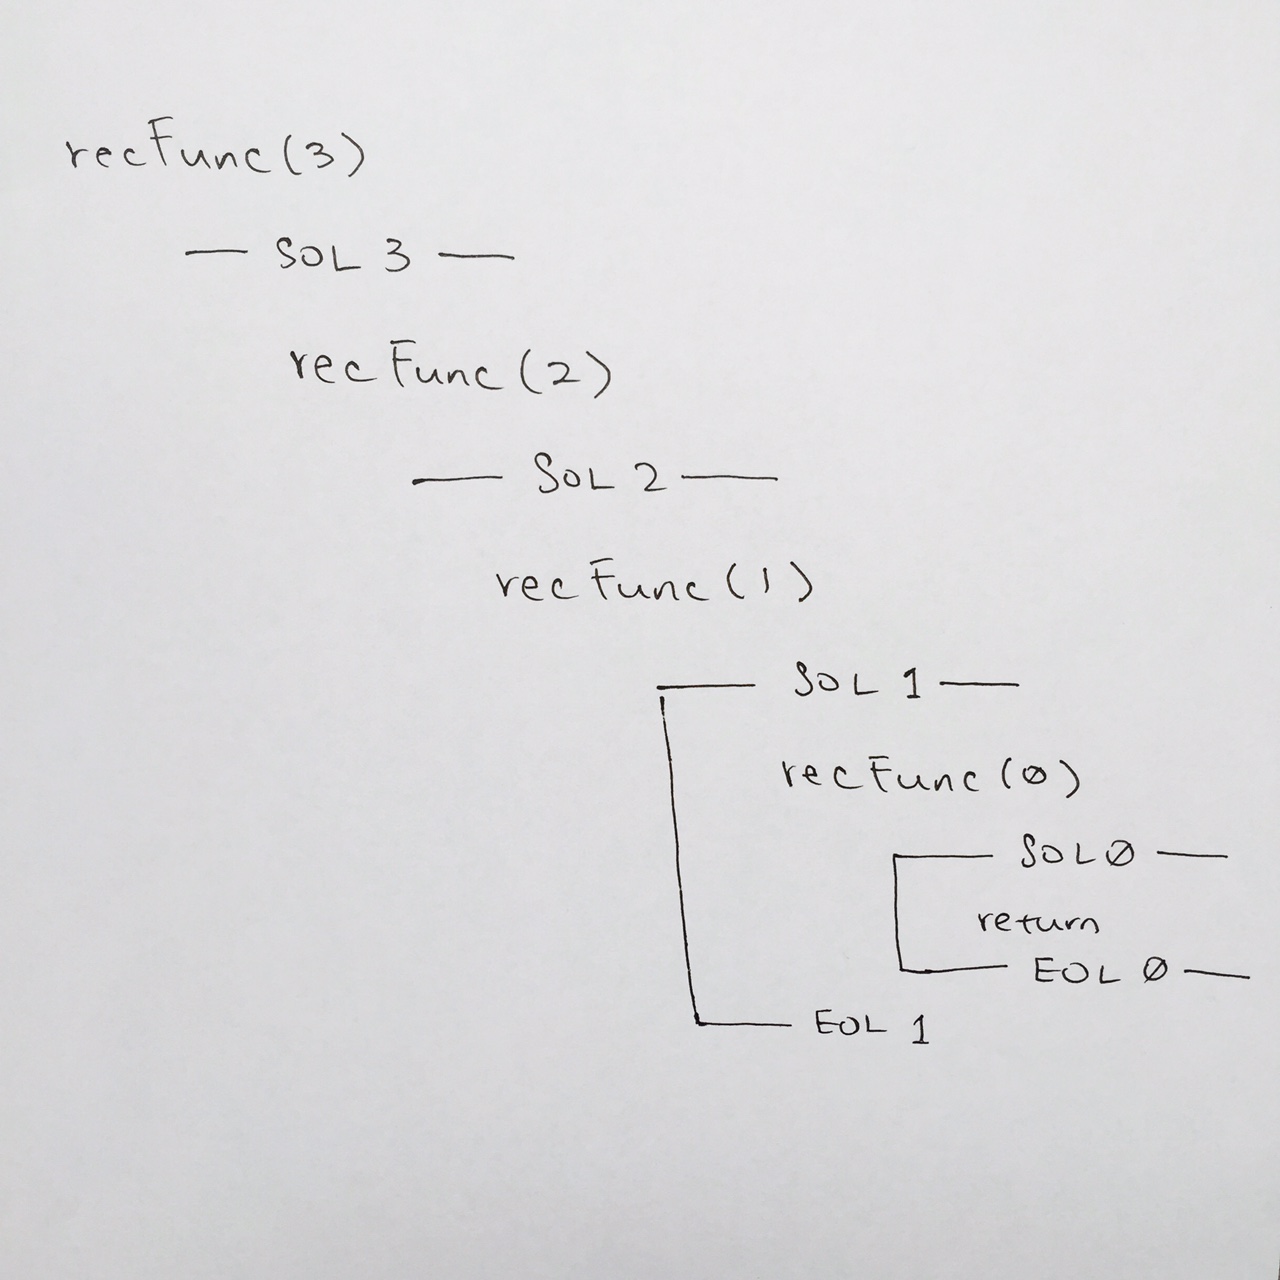 recFunc(3)
— SOL 3 —
recFunc(2)
— SOL 2 —
recFunc(1)
— SOL 1 —
recFunc(0)
— SOL 0 —
return
— EOL 0 —
— EOL 1